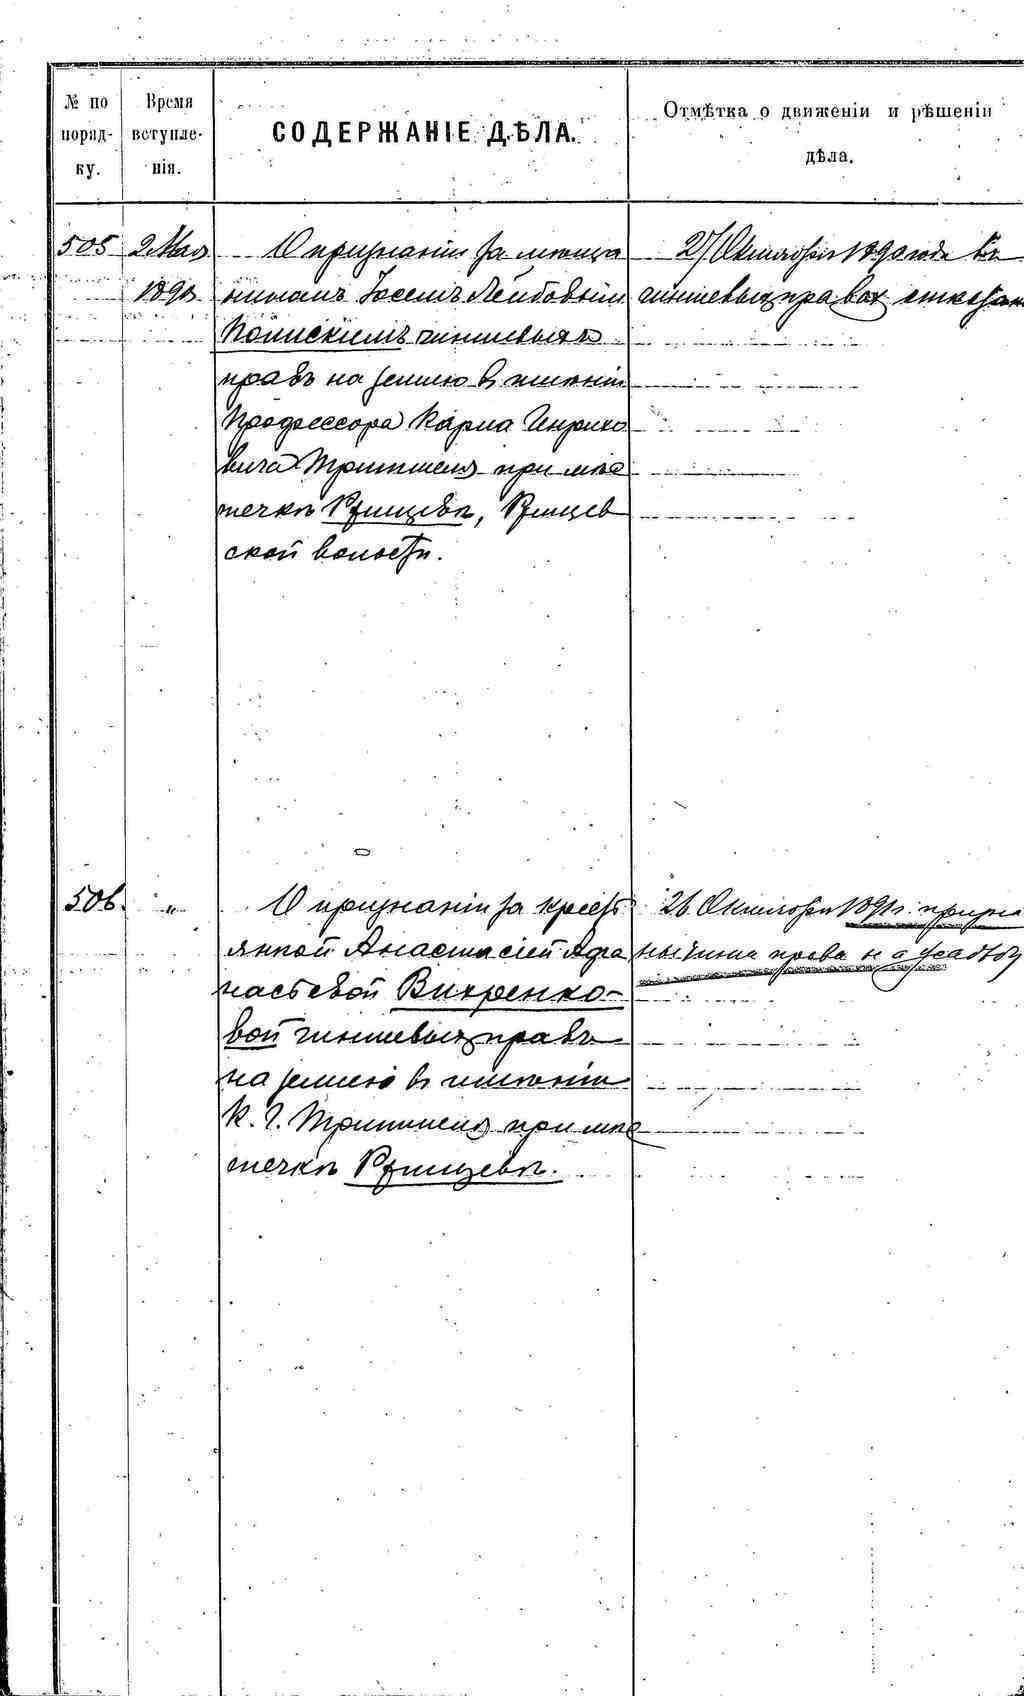 № по
поряд-
ку.
Время
вступле-
нія.
СОДЕРЖАНІЕ ДѢЛА.
Отмѣтка о движеніи и рѣшеніи
дѣла.
505 2 Мая О признаніи за мѣща
1890 ниномъ Іосемъ Лейбовым
чиншевыхъ
правъ на землю въ имѣніи
Профессора Карла Генрихо
вича Тритшеля при мѣс
течкѣ Ржищевѣ, Ржищев
ской волости.
27 Октября 1890 года въ
чиншевыхъ правах отказано
506. " О признаніи за крест
янкой Анастасіей Афа
насьевой Вихренко-
вой чиншевыхъ правъ
на землю въ имѣніи
К. Г. Тритшеля при мѣс
течкѣ Ржищевѣ.
26 Октября 1891 г. призна
ны чинш права на усадьбу